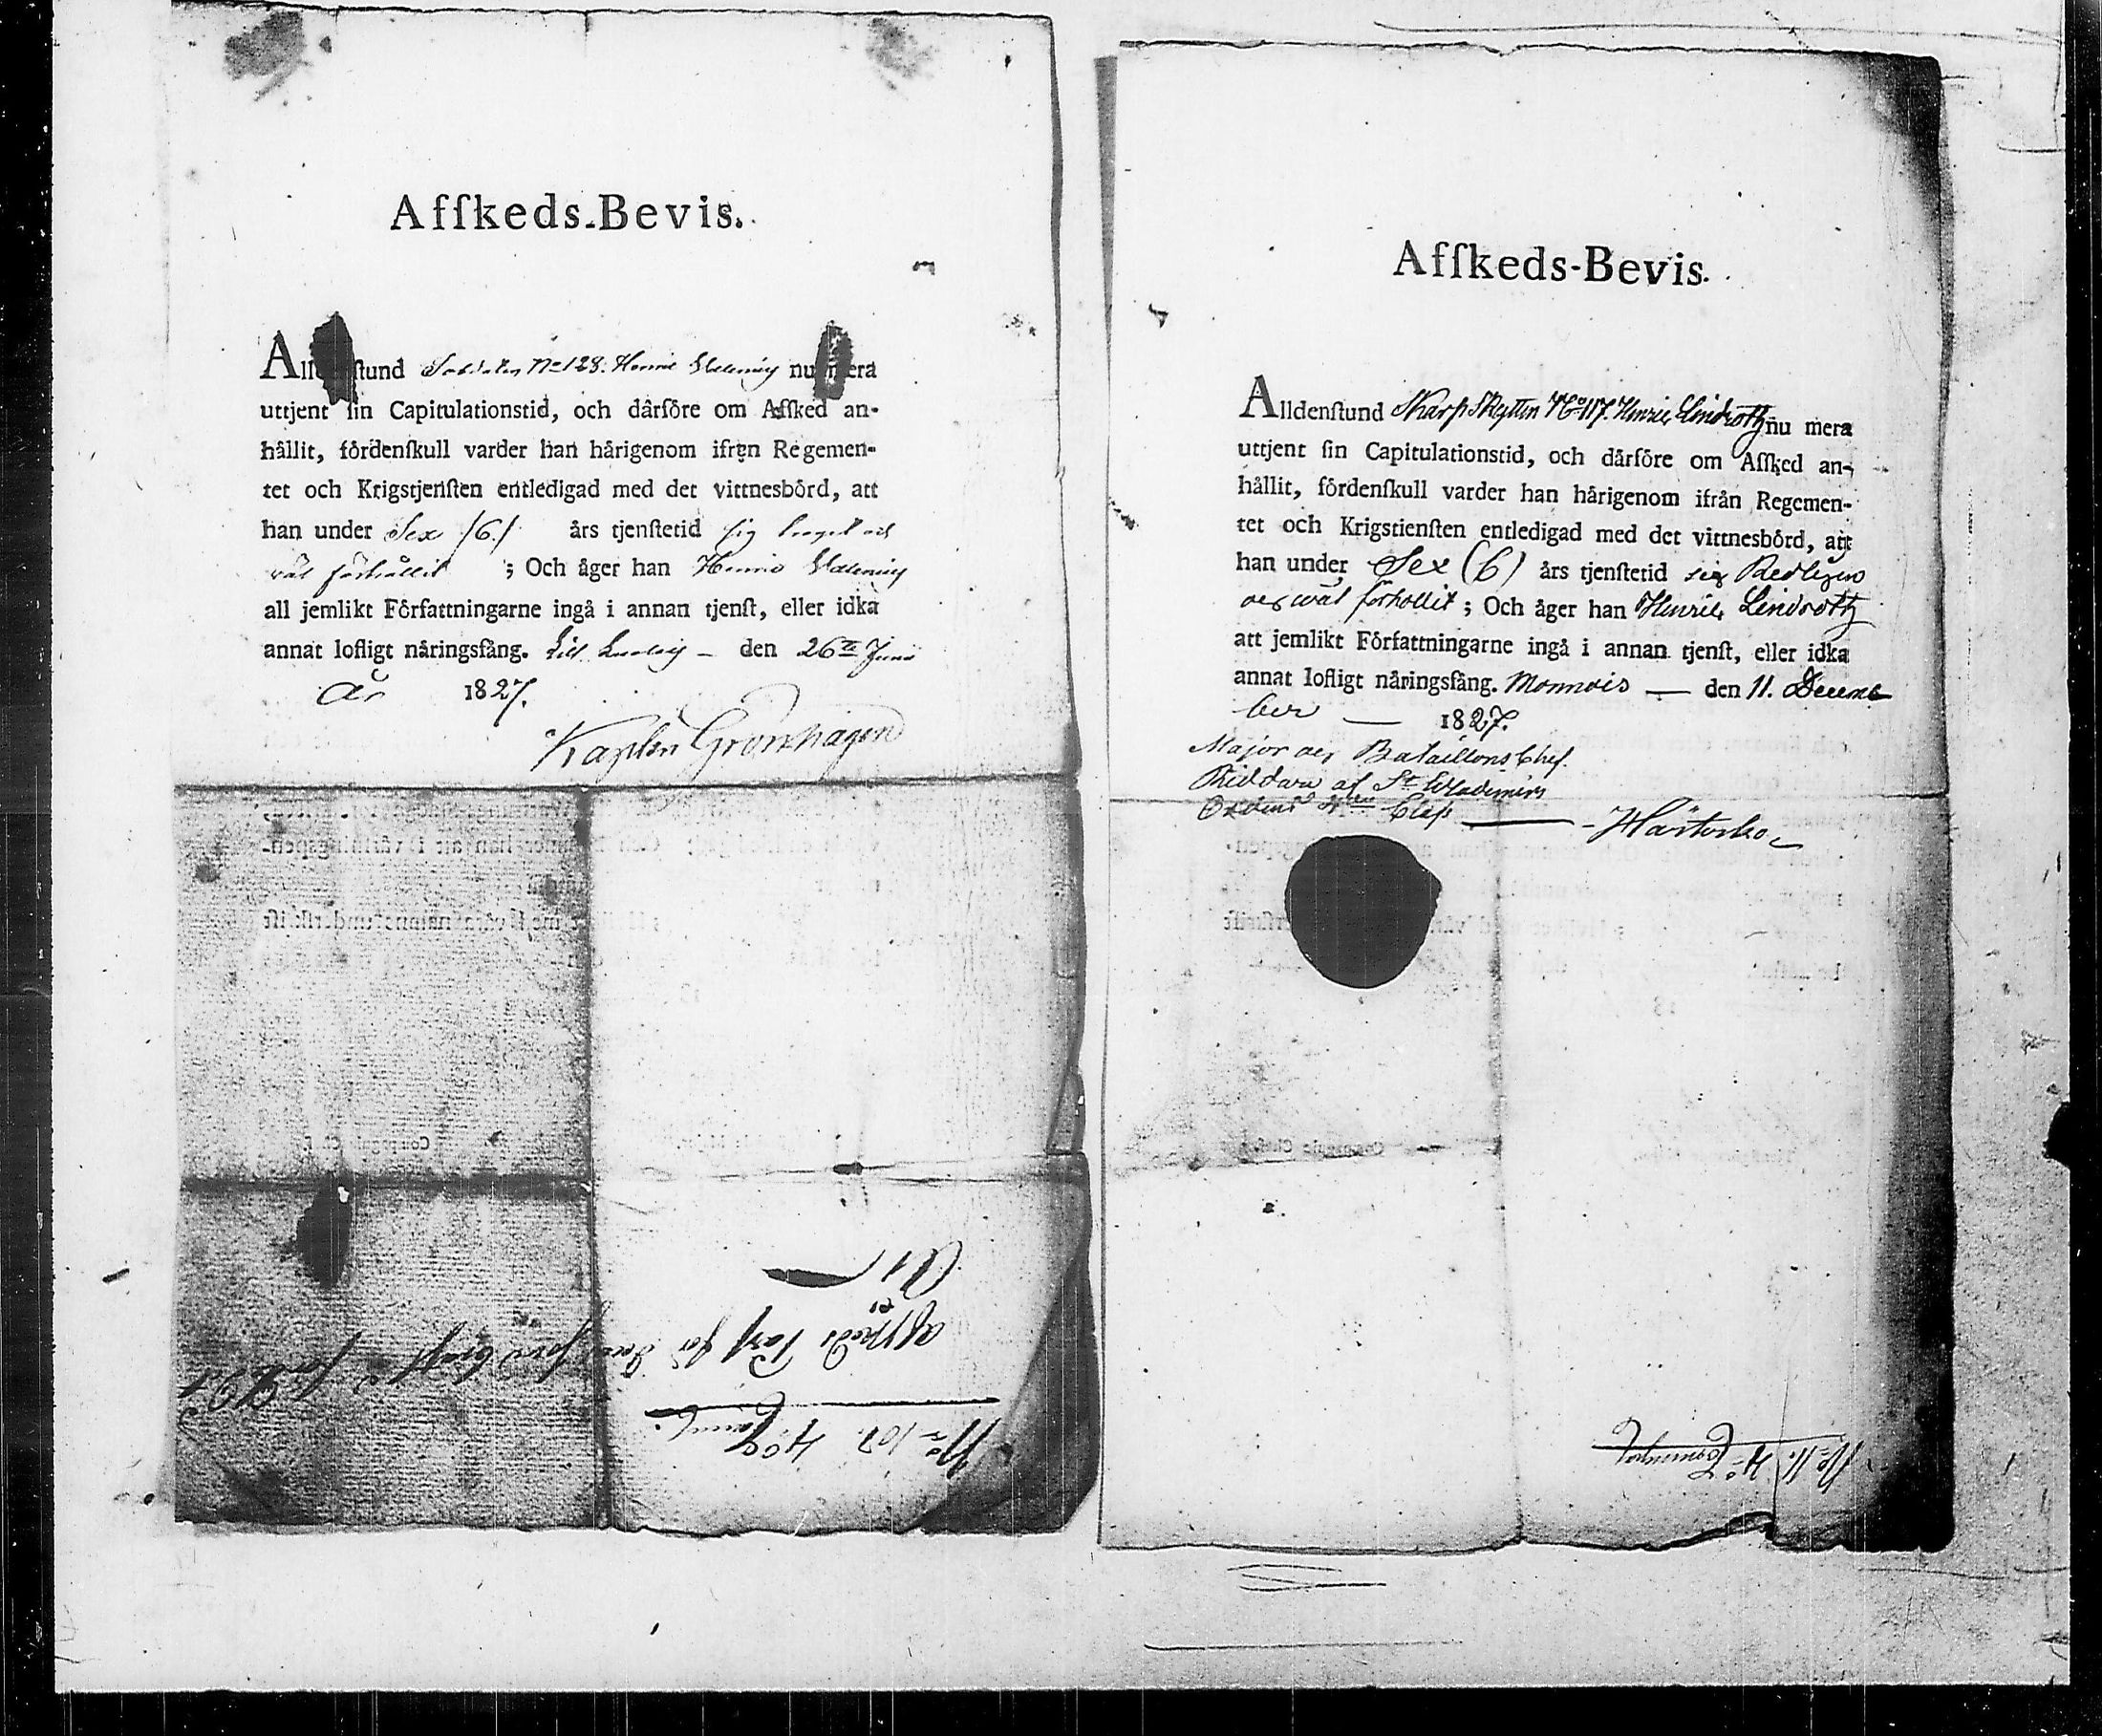 Afſkeds-Bevis.
Alldenſtund Soldaten No 128. Henric nu mera
uttjent ſin Capitulationstid, och dårfôre om Afſked an-
hållit, fôrdenſkull varder han hårigenom ifrån Regemen-
tet och Krigstjenſten entledigad med det vittnesbôrd, att
han under Sex /6/ års tjenſtetid ſig troget och
väl förhållit ; Och åger han Henric
att jemlikt Fôrfattningarne ingå i annan tjenſt, eller idka
annat lofligt nåringsfång. Lill den 26te Junii
År 1827.
Kapten Grönhagen
No 107. 4:
Afskeds Pass för
Afſkeds-Bevis.
Alldenſtund Skarp Skytten No 117. Henric Lindroth nu mera
uttjent ſin Capitulationstid, och dårfôre om Afſked an-
hållit, fôrdenſkull varder han hårigenom ifrån Regemen-
tet och Krigstienſten entledigad med det vittnesbôrd, att
han under Sex (6) års tjenſtetid sig Redligen
och wäl förhollit ; Och åger han Henric Lindroth
att jemlikt Fôrfattningarne ingå i annan tjenſt, eller idka
annat lofligt nåringsfång. Monnois — den 11. Decem
ber — 1827.
Major och Bataillons Chef.
Riddare af St Wladimirs
Ordens 4de Class
No 11. 4:
Compagnie Chef.